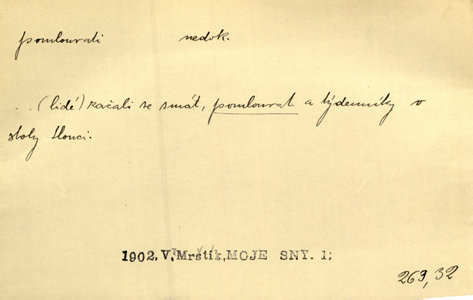 pomlouvati nedok.
..(lidé) začali se smát, pomlouvat a týdenníky o
stoly tlouci.
1902, V. Mrštík, MOJE SNY. 1;
263, 32